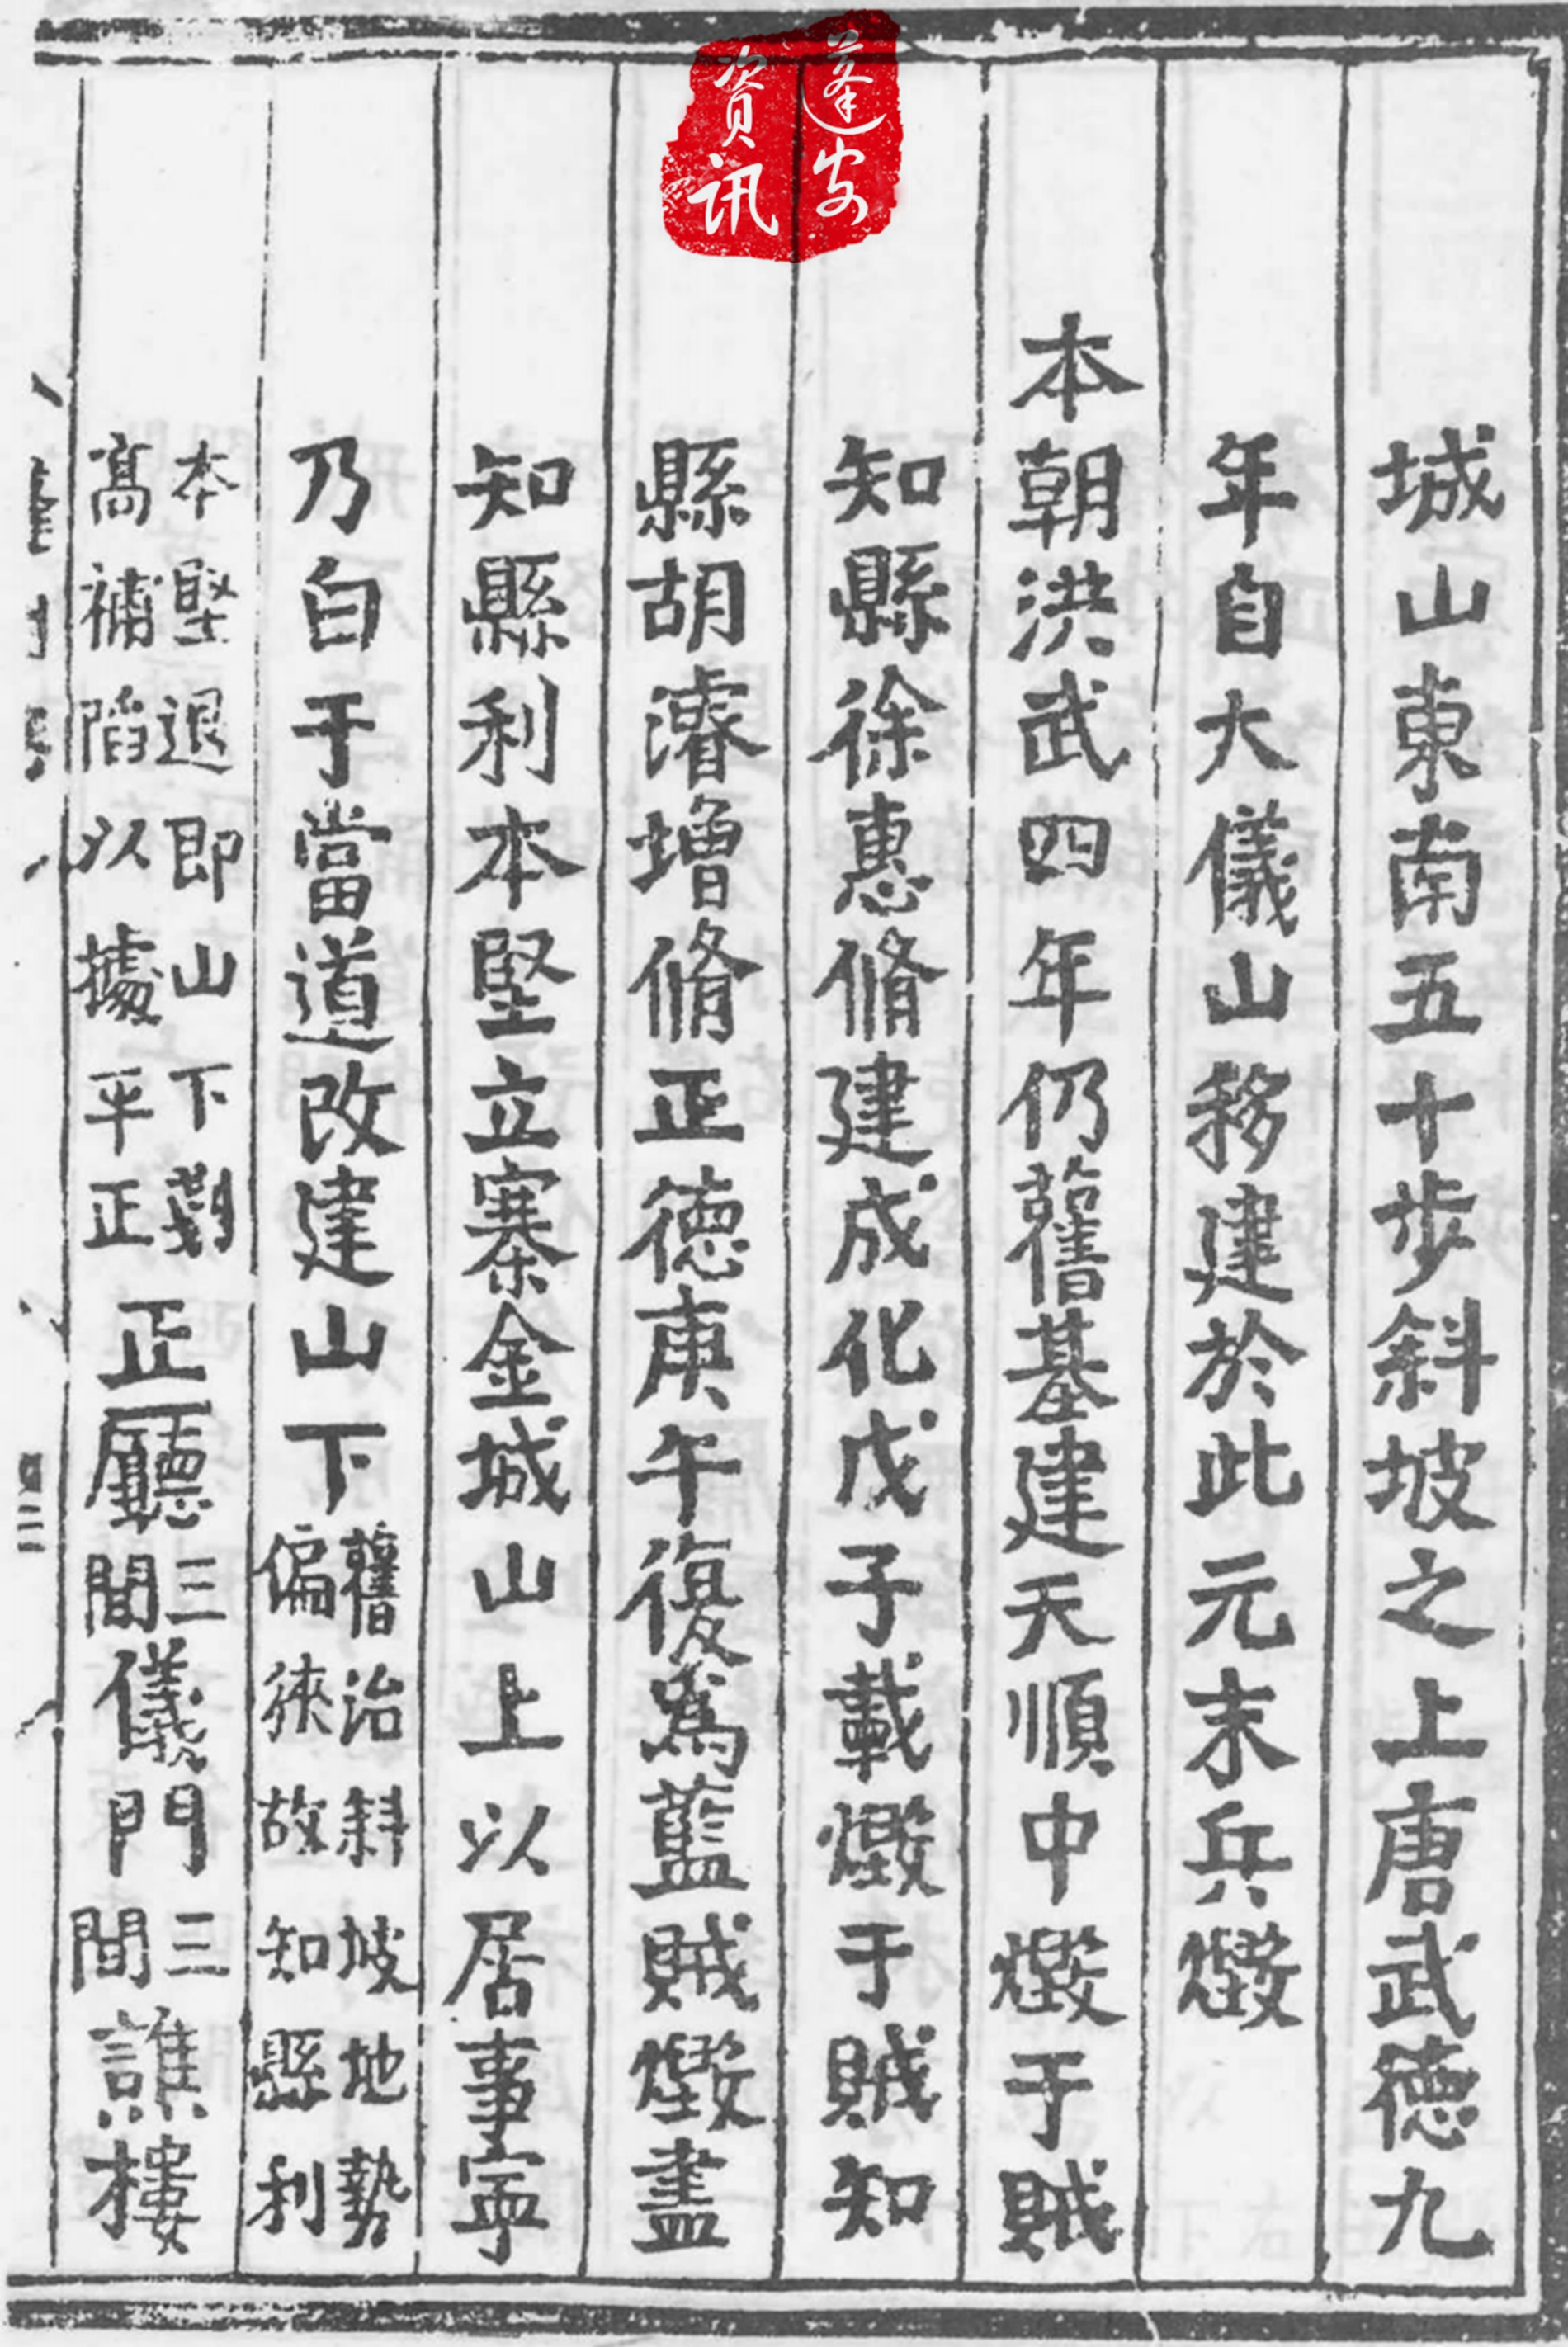 蓬安
資訊
城山東南五十步斜坡之上唐武德九
年自大儀山移建於此元末兵燬
本朝洪武四年仍舊基建天順中燬于賊
知縣徐惠脩建成化戊子載燬于賊知
縣胡濬增脩正德庚午復為藍賊燬盡
知縣利本堅立寨金城山上以居事寧
乃白于當道改建山下舊治斜坡地勢
偏狹故知縣利
本堅退即山下剗
高補陷以據平正正廳三間儀門三間譙樓